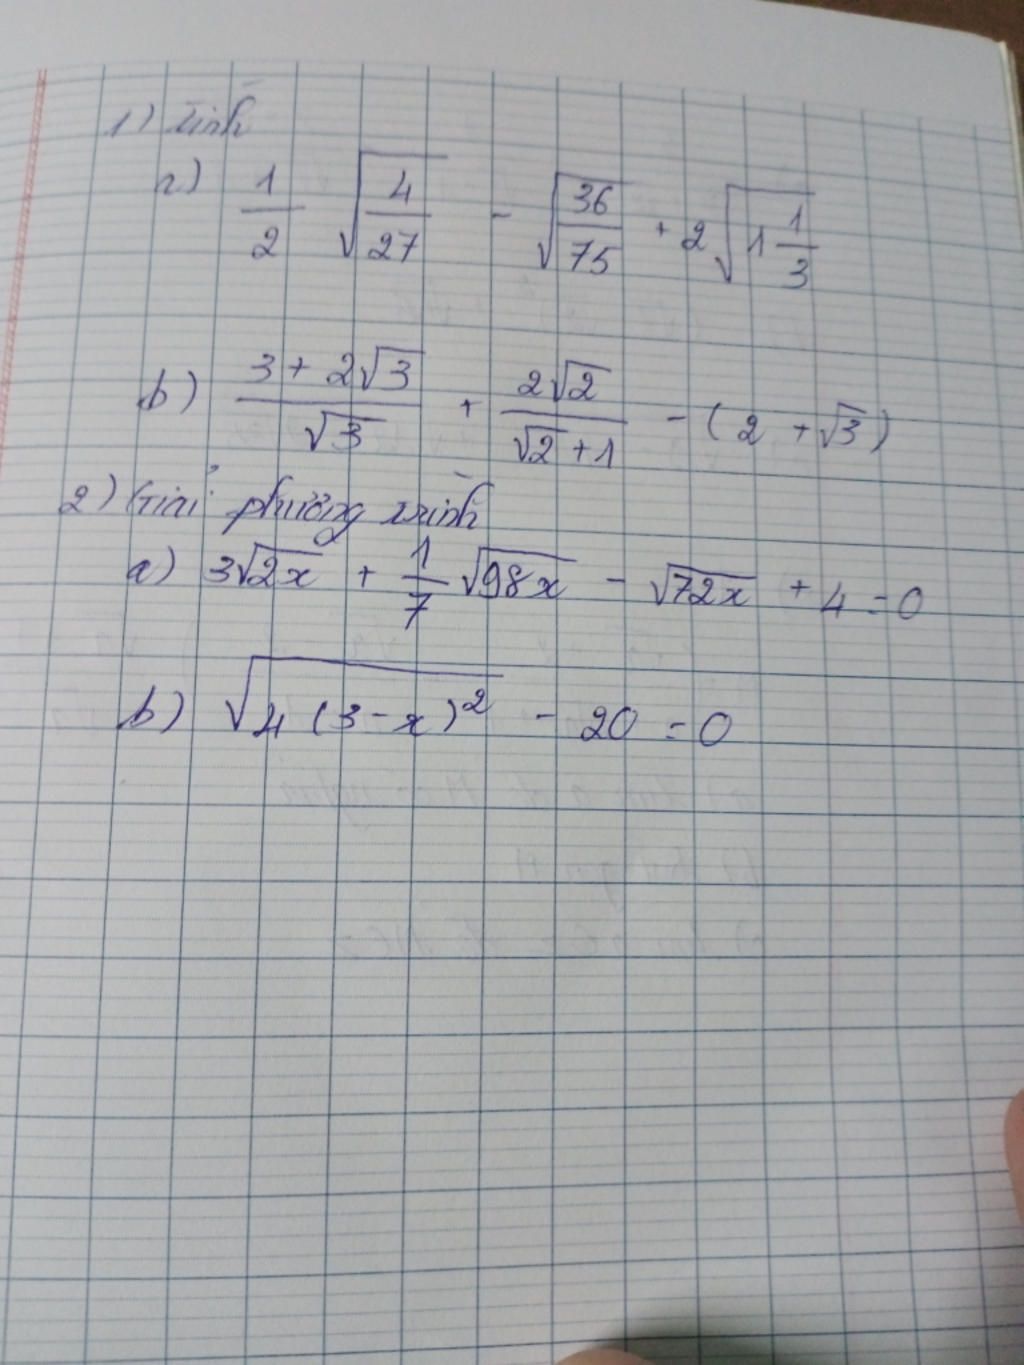 1) Tính
a) 1/2 √(4/27) - √(36/75) + 2√(1 1/3)
b) (3 + 2√3)/√3 + 2√2/(√2 + 1) - (2 + √3)
2) Giải phương trình
a) 3√(2x) + 1/7 √(98x) - √(72x) + 4 = 0
b) √(4(3 - x)²) - 20 = 0